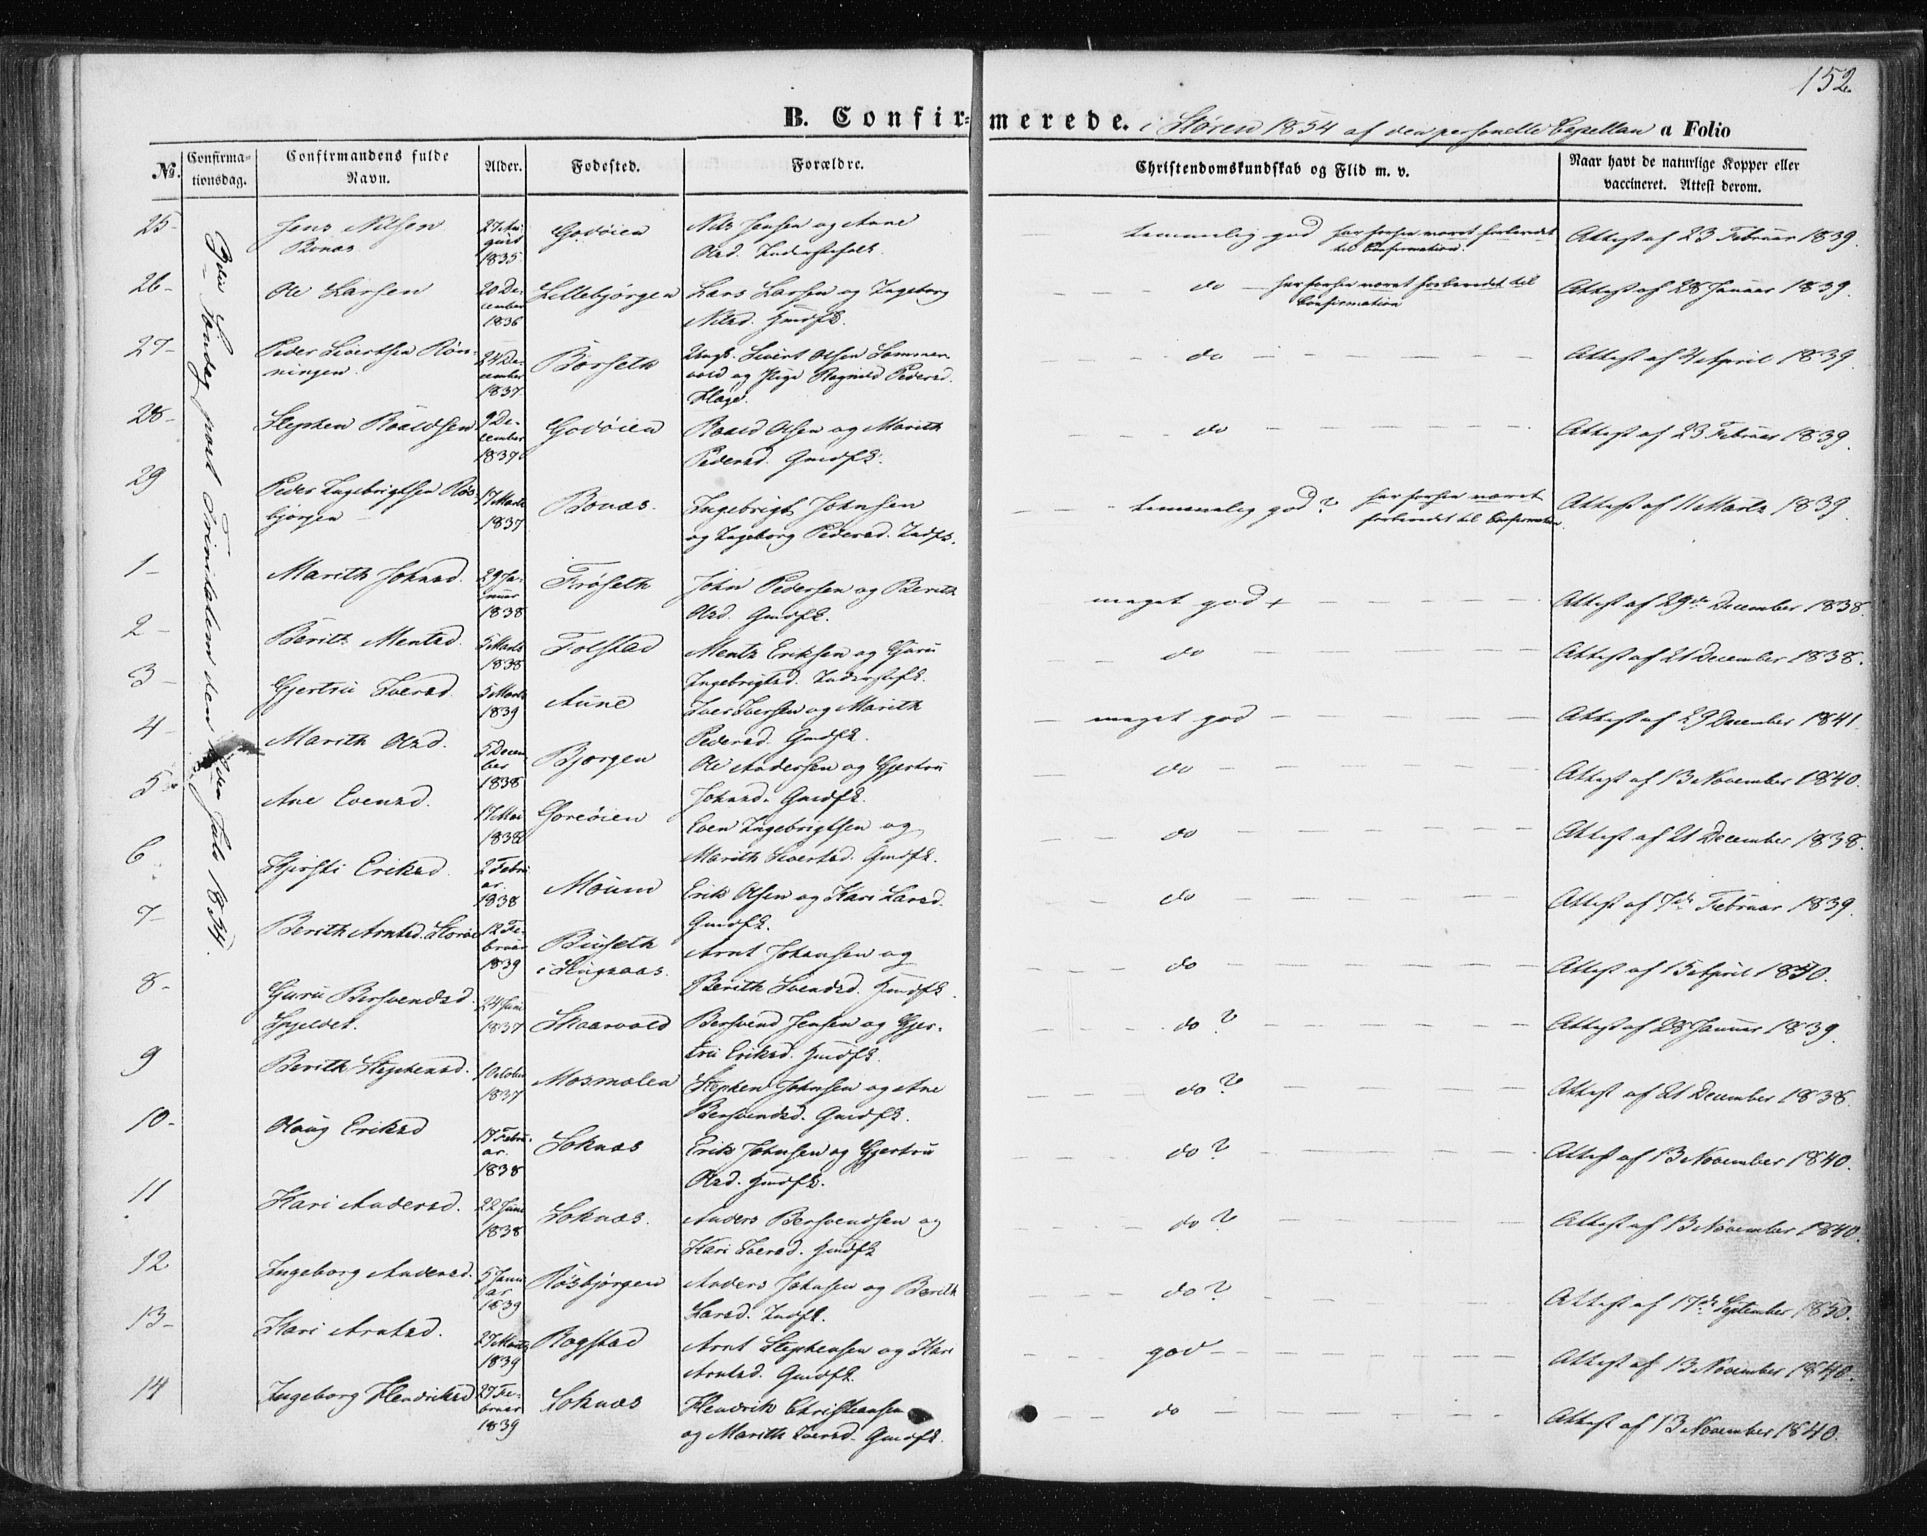 152.
B. Confirmerede. i Støren 1854 af den personelle Capellan a Folio
№. Confirmationsdag. Confirmandens fulde Navn. Alder. Fødested. Forældre. Christendomskundskab og Flid m. v. Naar havt de naturlige Kopper eller vaccineret. Attest derom.
Søndag post Trinitatem den Juli 1854.
25- Jens Nilsen Bonæs 27 August 1835 Godøien Nils Jensen og Ane Olsd. Inderstfolk. temmelig god har forhen været forberedt til Confirmation. Attest af 23 Februar 1839.
26- Ole Larsen 20 December 1836 Lillebjørgen Lars Larsen og Ingeborg Nilsd. Hmdfk. do har forhen været forberedt til Confirmation Attest af 28 Januar 1839.
27- Peder Sivertsen Rønningen. 24 December 1837 Børseth Ungk. Sivert Olsen Sommervold og Pige Ragnild Pedersd. Hage. do Attest af 21 April 1839.
28- Stephen Roaldsen 9 December 1837 Godøien Roald Olsen og Marith Pedersd. Gmdfk. do Attest af 23 Februar 1839.
29 Peder Ingebrigtsen Røsbjørgen 17 Marts 1837 Bonæs. Ingebrigt Johnsen og Ingeborg Pedersd. Indfk. temmelig god? har forhen været forberedt til Confirmation Attest af 11 Marts 1839.
1- Marith Johnsd. 29 Januar 1838 Frøseth John Pedersen og Berith Olsd. Gmdfk. meget god + Attest af 29de December 1838.
2- Berith Mentsd. 5 Marts 1838 Folstad Mentz Eriksen og Guru Ingebrigtsd. Inderstfk. do Attest af 21 December 1838.
3- Gjertru Iversd. 5 Marts 1839 Aune Iver Iversen og Marith Pedersd. Gmdfk. meget god Attest af 29 December 1841.
4- Marith Olsd. 5 December 1838 Bjørgen Ole Andersen og Gjertru Johnsd. Gmdfk. do Attest af 13 November 1840.
5- Ane Evensd. 17 Mai 1838 Goreøien Even Ingebrigtsen og Marith Sivertsd. Gmdfk. do Attest af 21 December 1838.
6 Kjersti Eriksd. 2 Februar. 1838 Moum Erik Olsen og Kari Larsd. Gmdfk. do Attest af 7de Februar 1839.
7- Berith Arntsd. Storøe 12 Februar 1839 Buseth i Singsaas. Arnt Johansen og Berith Svendsd. Hmdfk. do Attest af 15 April 1850.
8- Guru Bersvendsd. Hjeldet. 24 Juni 1837 Skaarvold Bersvend Jensen og Gjertru Eriksd. Hmdfk. do? Attest af 28 Januar 1839.
9 Berith Stephensd. 1 October 1837 Mosmælen Stephen Johnsen og Ane Bersvendsd. Gmdfk. do? Attest af 21 December 1838.
10- Olaug Eriksd 17 Februar. 1838 Soknæs Erik Johnsen og Gjertru Olsd. Hmdfk. do? Attest af 13 November 1840.
11 Kari Andersd. 22 Juni 1838 Soknæs. Anders Bersvendsen og Kari Iversd. Hmdfk do? Attest af 13 November 1840.
12 Ingeborg Andersd. 5 Januar 1839 Røsbjørgen Anders Johnsen og Berith Larsd. Indfk. do? Attest af 17de September 1850.
13- Kari Arntsd. 27 Marts 1839 Rogstad Arnt Stephensen og Kari Arntsd. Gmdfk. god Attest af 13 November 1840.
14 Ingeborg Hendriksd 27 Februar 1839 Soknæs Hendrik Christiansen og Marith Iversd. Gmdfk. do Attest af 13 November 1840.